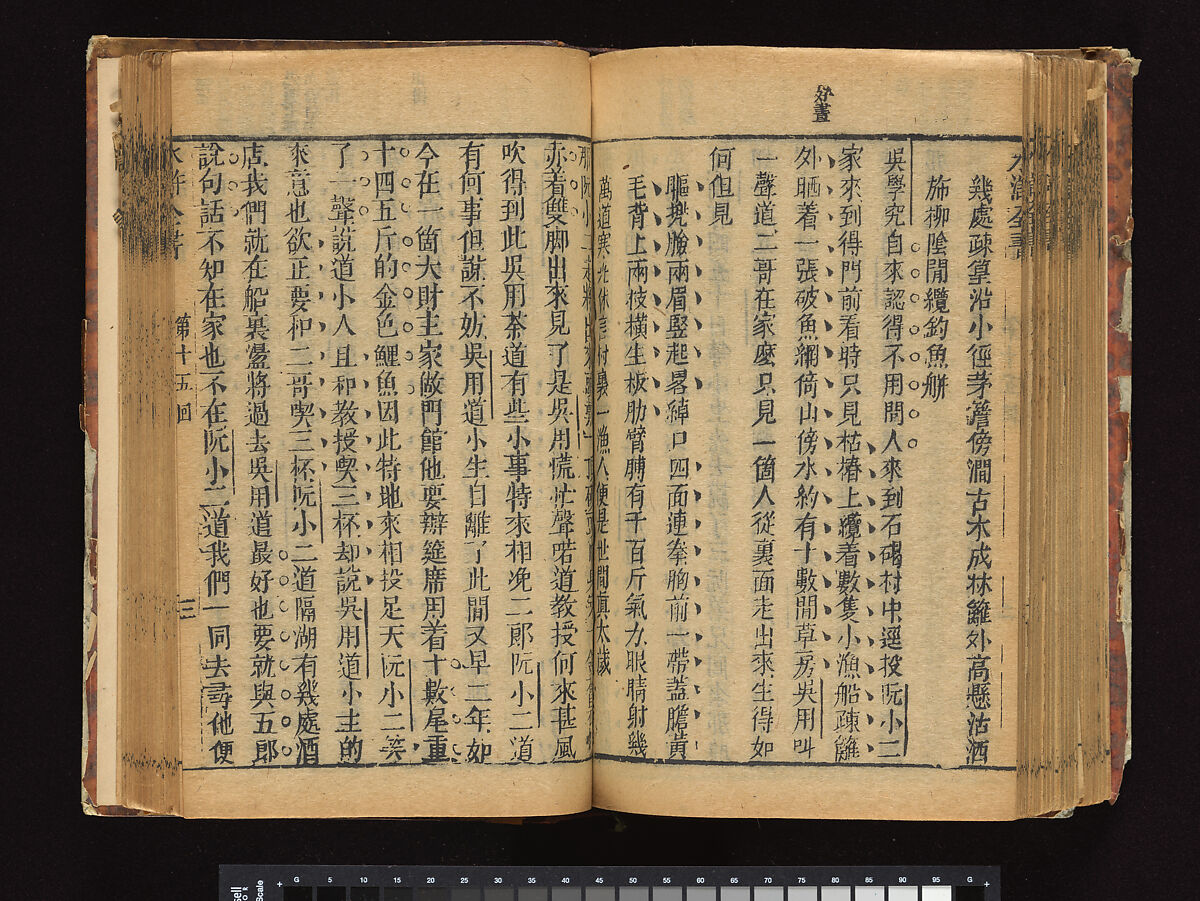 好畫
幾處疎篁沿小徑茅簷傍澗古木成林籬外高懸沽酒
斾柳陰閒纜釣魚艇
吳學究自來認得不用問人來到石碣村中逕投阮小二
家來到得門前看時只見枯樁上纜着數隻小漁船疎籬
外晒着一張破魚網倚山傍水約有十數間草房吳用叫
一聲道二哥在家麼只見一箇人從裏面走出來生得如
何但見
𥈭兠臉兩眉竪起畧綽口四面連拳胸前一帶蓋膽黃
毛背上兩枝橫生板肋臂膊有千百斤氣力眼睛射幾
萬道寒光休言村裏一漁人便是世間眞太歲
那阮小二走將出來頭
亦着雙脚出來見了是吳用慌忙聲喏道教授何來甚風
吹得到此吳用荅道有些小事特來相浼二郎阮小二道
有何事但說不妨吳用道小生自離了此間又早二年如
今在一箇大財主家做門館他要辦筵席用着十數尾重
十四五斤的金色鯉魚因此特地來相投足天阮小二笑
了一聲說道小人且和教授喫三杯却說吳用道小主的
來意也欲正要和二哥喫三杯阮小二道隔湖有幾處酒
店我們就在船裏盪將過去吳用道最好也要就與五郎
說句話不知在家也不在阮小二道我們一同去尋他便
水滸全書
第十五回
三